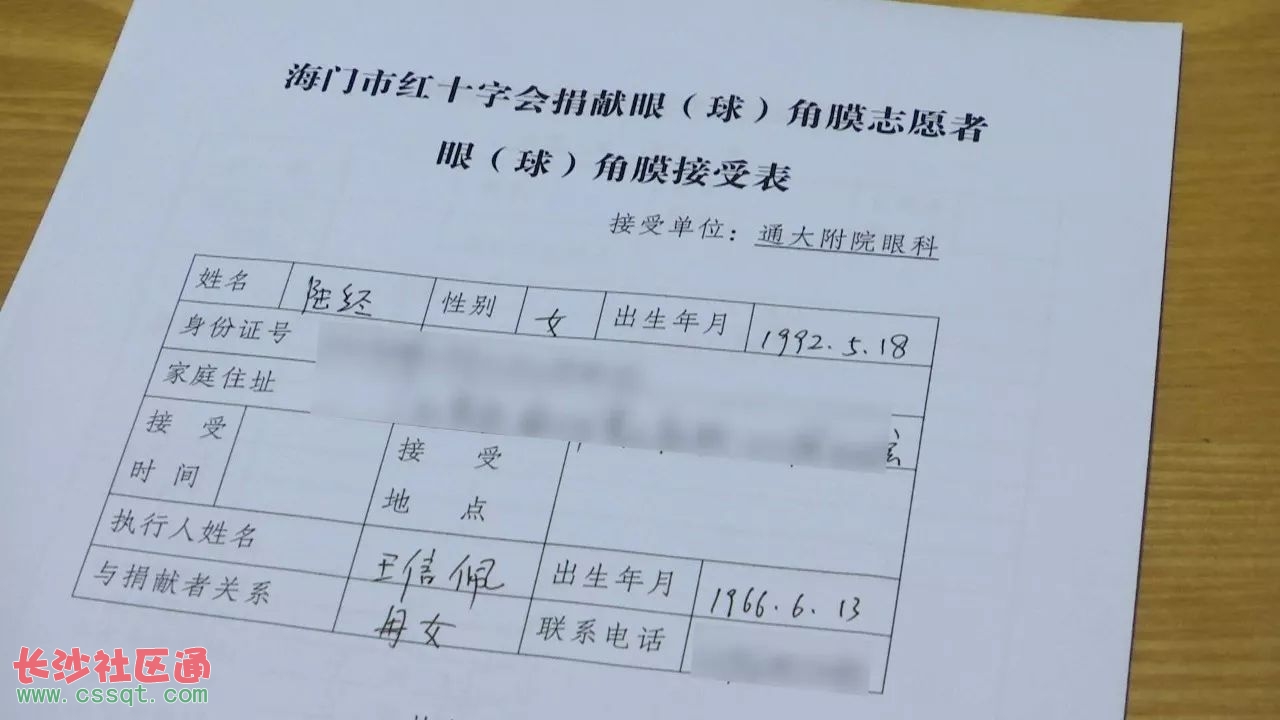 海门市红十字会捐献眼（球）角膜志愿者
眼（球）角膜接受表
接受单位：通大附院眼科
姓名 陆经 性别 女 出生年月 1992.5.18
身份证号
家庭住址
接受时间 接受地点
执行人姓名 王信佩 出生年月 1966.6.13
与捐献者关系 母女 联系电话
长沙社区通
www.cssqt.com